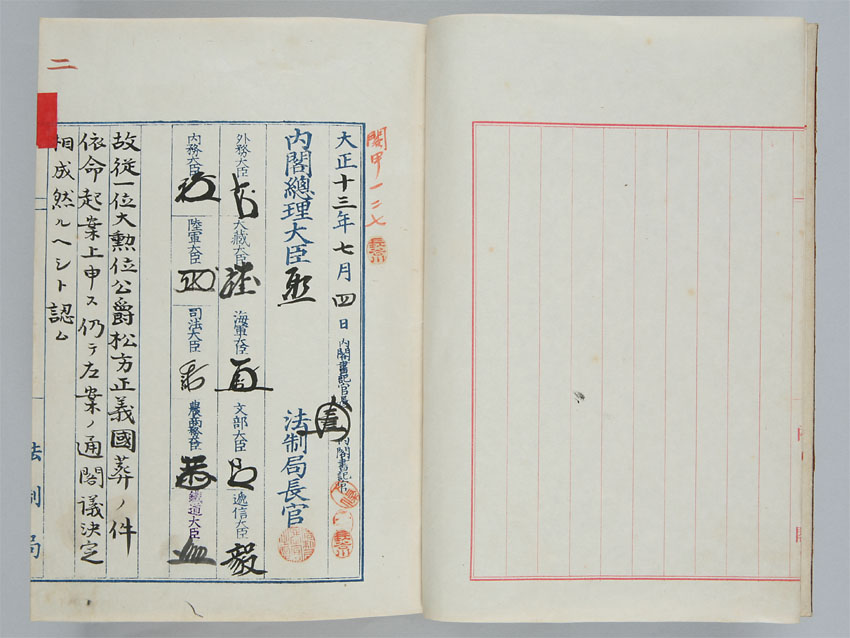 二
閣甲一二七
大正十三年七月四日
内閣書記官長
内閣書記官
内閣總理大臣
法制局長官
外務大臣
大藏大臣
海軍大臣
文部大臣
遞信大臣
毅
内務大臣
陸軍大臣
司法大臣
農商務大臣
鐵道大臣
故從一位大勲位公爵松方正義國葬ノ件
依命起案上申ス仍テ左案ノ通閣議決定
相成然ルヘシト認ム
法制局